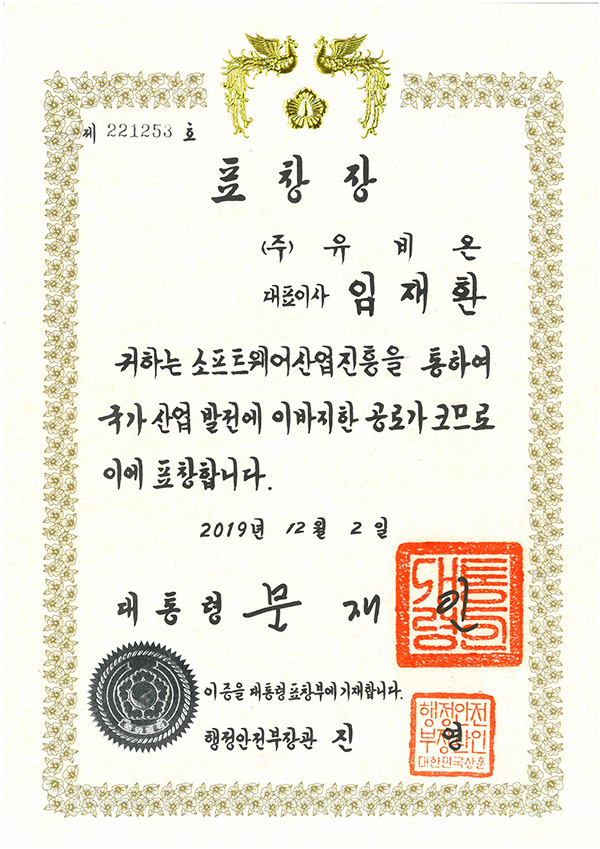 제 221253 호
표창장
(주) 유비온
대표이사 임재환
귀하는 소프트웨어산업진흥을 통하여
국가 산업 발전에 이바지한 공로가 크므로
이에 표창합니다.
2019년 12월 2일
대통령 문재인
대통령의인
이 증을 대통령 표창부에 기재합니다.
행정안전부장관 진영
행정안전
부장관인
대한민국상훈